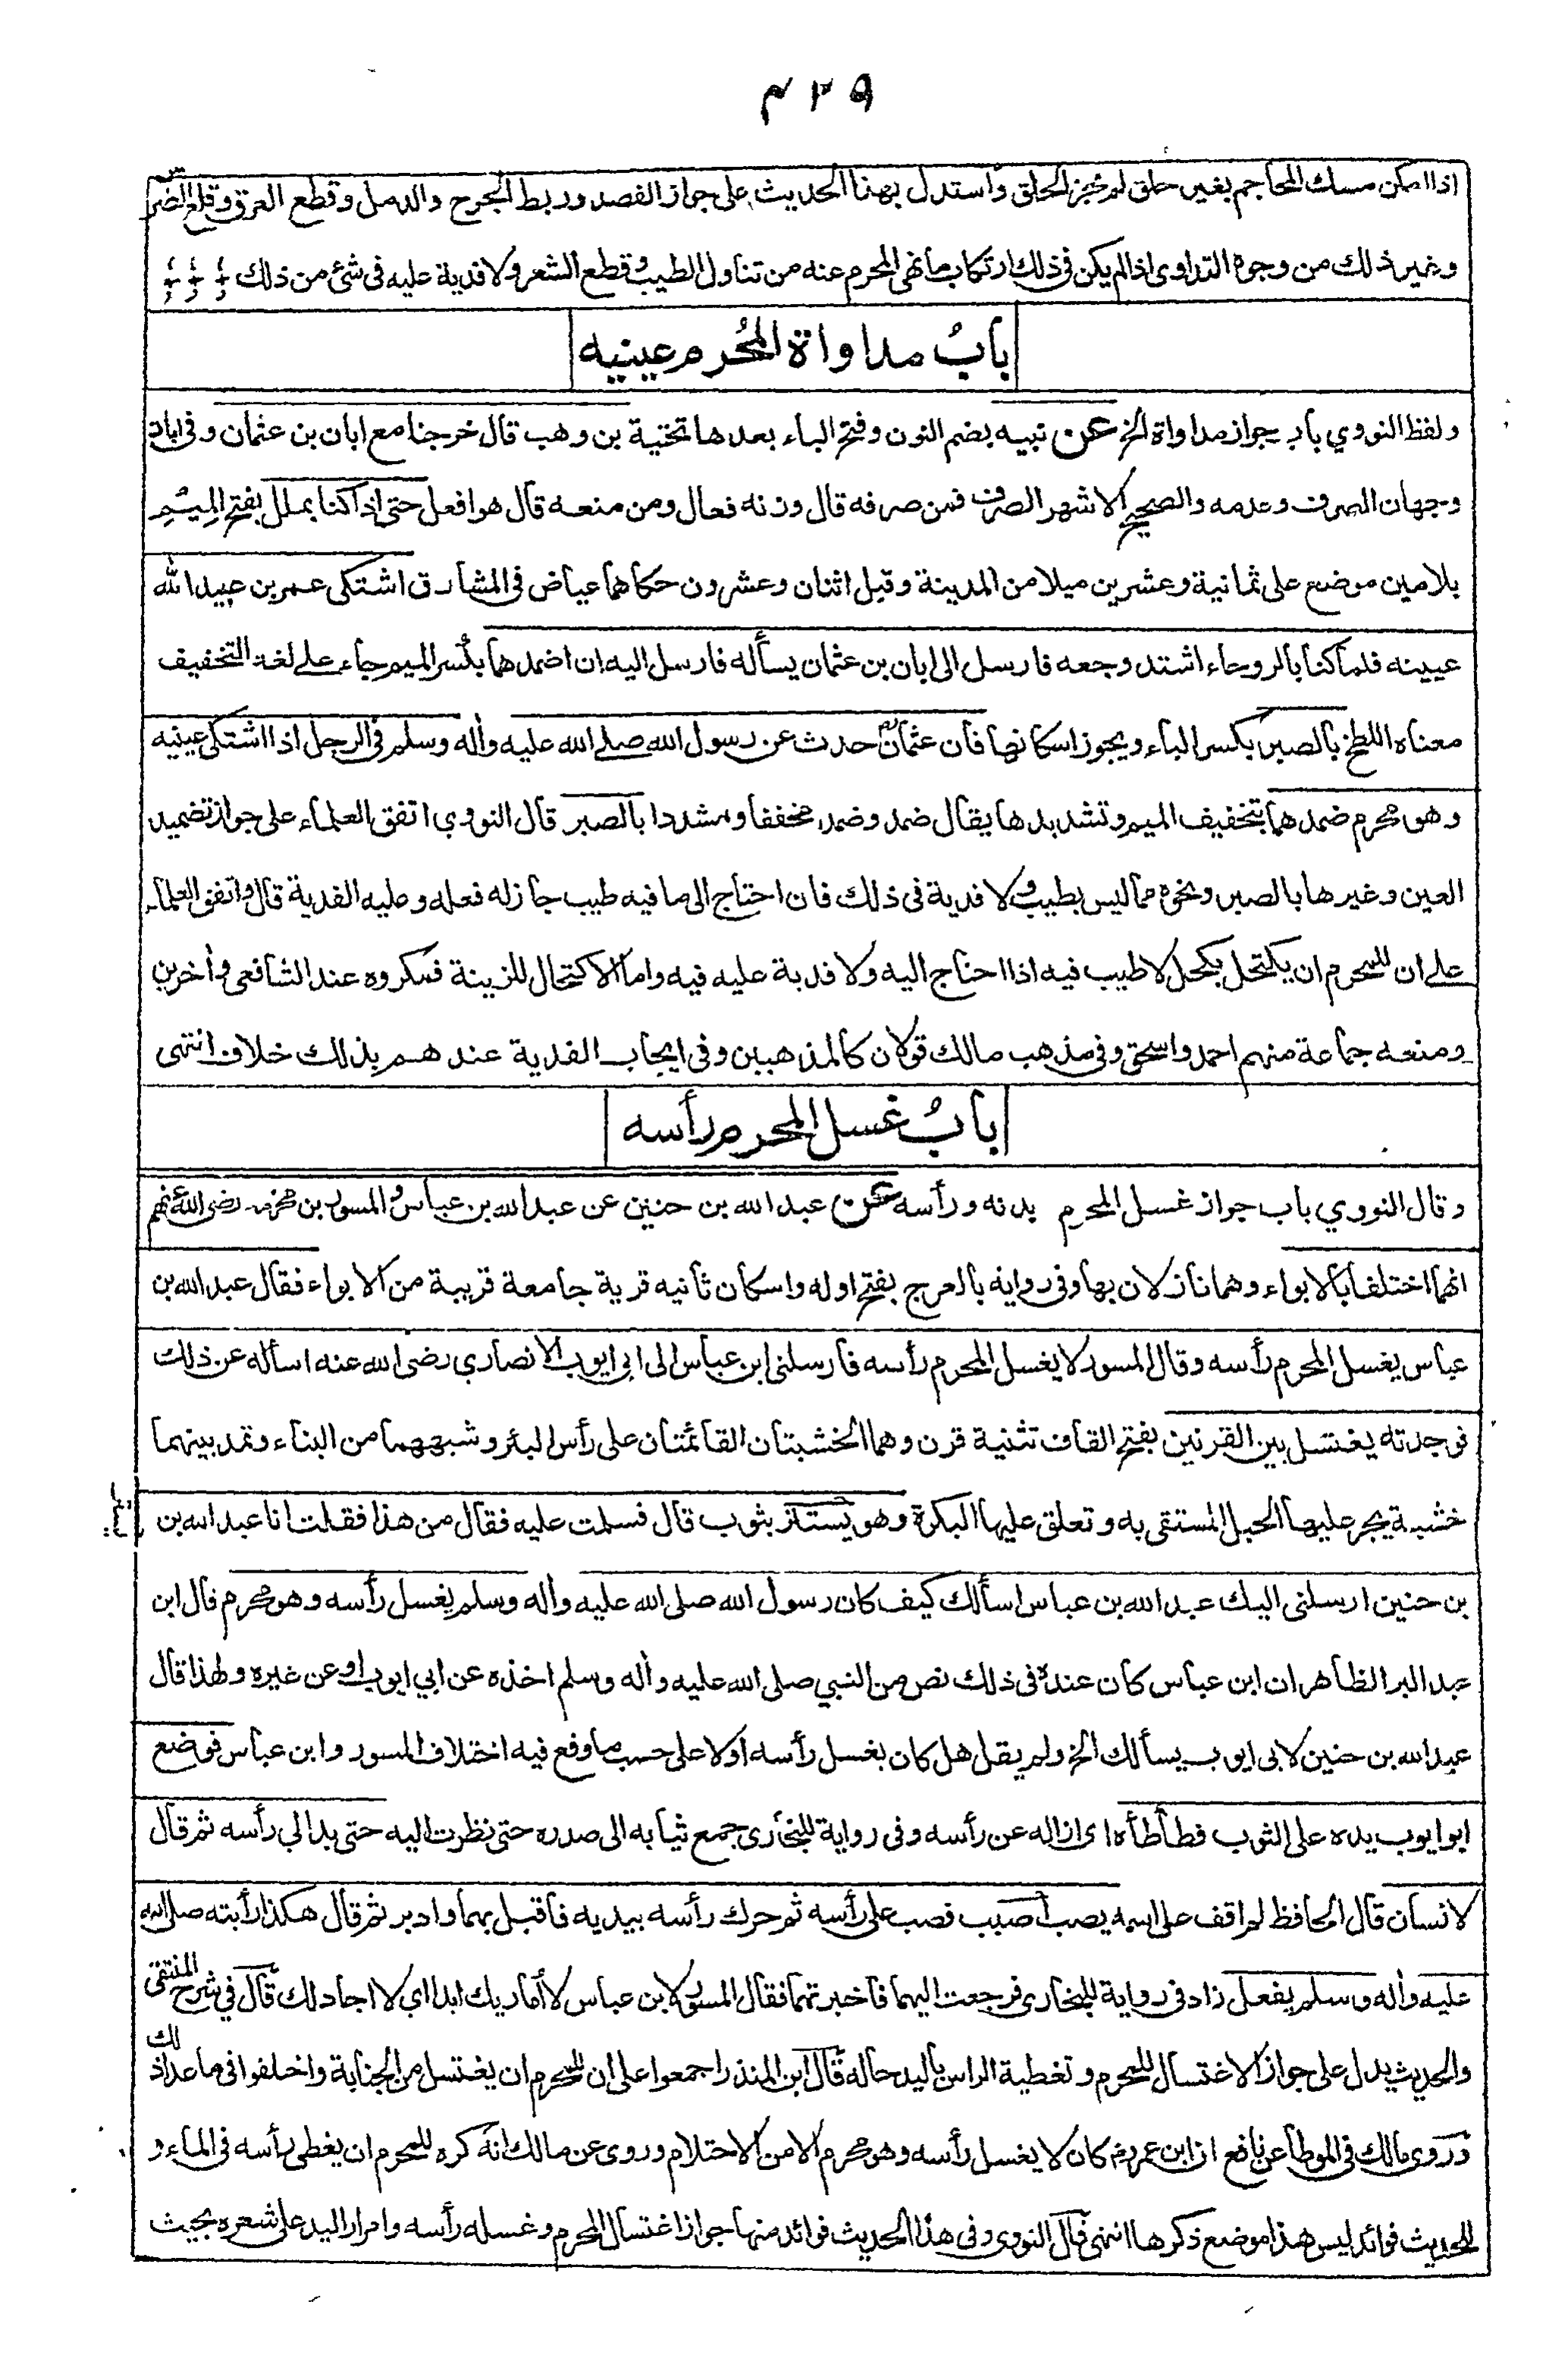 ٤٢٩
اذا امكن مسك المحاجم بغير حلق لم يجز الحلق واستدل بهذا الحديث على جواز الفصد وربط الجرح والدمل وقطع العرق وقلع الضرس
وغير ذلك من وجوه التداوى اذا لم يكن فى ذلك ارتكاب ما نهى المحرم عنه من تناول الطيب وقطع الشعر ولا فدية عليه فى شئ من ذلك
بابُ مداواة المُحُرم عينيه
ولفظ النووي باب جواز مداواة الخ عن نبيه بضم النون وفتح الباء بعدها تحتية بن وهب قال خرجنا مع ابان بن عثمان وفى ابان
وجهان الصرف وعدمه والصحيح الاشهر الصرف فمن صرفه قال وزنه فعال ومن منعه قال هو افعل حتى اذا كنا بملل بفتح الميم
بلامين موضع على ثمانية وعشرين ميلا من المدينة وقيل اثنان وعشرون حكاهما عياض فى المشارق اشتكى عمر بن عبيد الله
عيينه فلما كنا بالروحاء اشتد وجعه فارسل الى ابان بن عثمان يسأله فارسل اليه ان اضمدها بكسر الميم جاء على لغة التخفيف
معناه اللطخ بالصبر بكسر الباء ويجوز اسكانها فان عثمان حدث عن رسول الله صلى الله عليه واٰله وسلم فى الرجل اذا اشتكى عينيه
وهو محرم ضمدهما بتخفيف الميم وتشديدها يقال ضمد وضمد مخففا ومشددا بالصبر قال النووي اتفق العلماء على جواز تضميد
العين وغيرها بالصبر ونحوه مما ليس بطيب ولا فدية فى ذلك فان احتاج الى ما فيه طيب جاز له فعله وعليه الفدية قال واتفق العلماء
على ان للمحرم ان يكتحل بكحل لا طيب فيه اذا احتاج اليه ولا فدية عليه فيه واما الاكتحال للزينة فمكروه عند الشافعى واٰخرين
ومنعه جماعة منهم احمد واسحق وفى مذهب مالك قولان كالمذهبين وفى ايجاب الفدية عندهم بذلك خلاف انتهى
بابُ غسل المحرم رأسه
وقال النووي باب جواز غسل المحرم بدنه ورأسه عن عبد الله بن حنين عن عبد الله بن عباس والمسور بن مخرمه رضى الله عنهم
انهما اختلفا بالابواء وهما نازلان بها وفى رواية بالعرج بفتح اوله واسكان ثانيه قرية جامعة قريبة من الابواء فقال عبد الله بن
عباس يغسل المحرم رأسه وقال المسور لا يغسل المحرم رأسه فارسلنى ابن عباس الى ابى ايوب الانصاري رضى الله عنه اسأله عن ذلك
فوجدته يغتسل بين القرنين بفتح القاف تثنية قرن وهما الخشبتان القائمتان على رأس البئر وشبههما من البناء وتمد بينهما
خشبة يجر عليها الحبل المستقى به وتعلق عليها البكرة وهو يستتر بثوب قال فسلمت عليه فقال من هذا فقلت انا عبد الله بن
بن حنين ارسلنى اليك عبد الله بن عباس اسألك كيف كان رسول الله صلى الله عليه واٰله وسلم يغسل رأسه وهو محرم قال ابن
عبد البر الظاهر ان ابن عباس كان عنده فى ذلك نص من النبي صلى الله عليه واٰله وسلم اخذه عن ابي ايوب او عن غيره ولهذا قال
عبد الله بن حنين لابى ايوب يسألك الخ ولم يقل هل كان يغسل رأسه اولا على حسب ما وقع فيه اختلاف المسور وابن عباس فوضع
ابو ايوب يده على الثوب فطأطأه اى ازاله عن رأسه وفى رواية للبخارى جمع ثيابه الى صدره حتى نظرت اليه حتى بدا لي رأسه ثم قال
لانسان قال الحافظ لم اقف على اسمه يصب اصبب فصب على رأسه ثم حرك رأسه بيديه فاقبل بهما وادبر ثم قال هكذا رأيته صلى الله
عليه واٰله وسلم يفعل زاد فى رواية للبخارى فرجعت اليهما فاخبرتهما فقال المسور لابن عباس لا أماريك ابدا اي لا اجادلك قال في شرح المنتقى
والحديث يدل على جواز الاغتسال للمحرم وتغطية الراس باليد حاله قال ابن المنذر اجمعوا على ان للمحرم ان يغتسل من الجنابة واختلفوا فى ما عدا ذلك
وروى مالك فى الموطأ عن نافع ان ابن عمر رض كان لا يغسل رأسه وهو محرم الا من الاحتلام وروى عن مالك انه كره للمحرم ان يغطى رأسه فى الماء و
للحديث فوائد ليس هذا موضع ذكرها انتهى قال النووى وفى هذا الحديث فوائد منها جواز اغتسال المحرم وغسله رأسه وامرار اليد على شعره بحيث